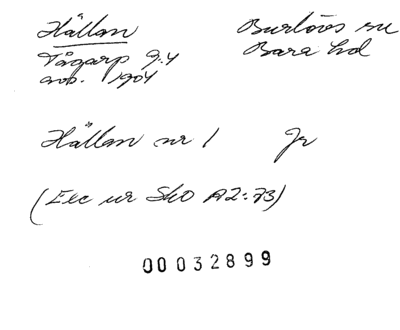 Hällan
Burlövs sn
Tågarp 9:4
Bara hd
avb. 1904
Hällan nr 1 Jr
(Exc ur SkO A2:73)
00032899